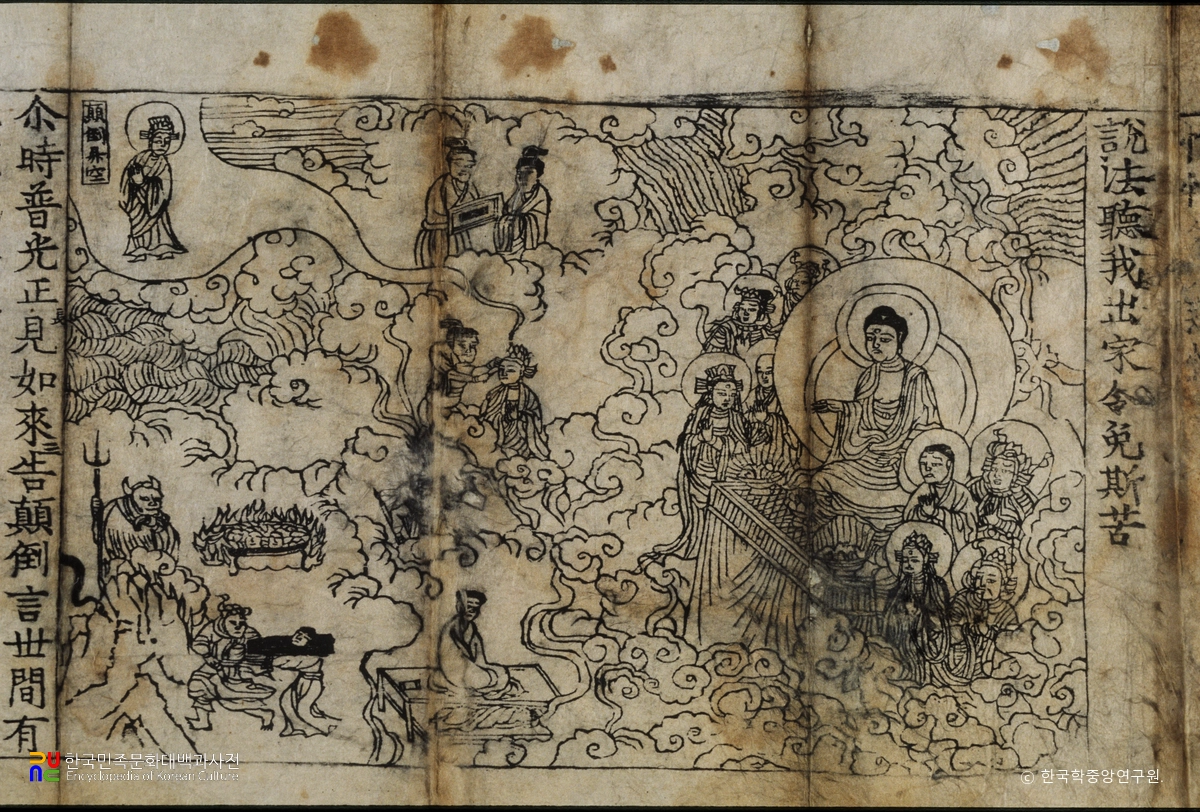 說法聽我出家免斯苦
顛倒昇空
尒時普光正見如來告顛倒言世間有
한국민족문화대백과사전
Encyclopedia of Korean Culture
© 한국학중앙연구원.